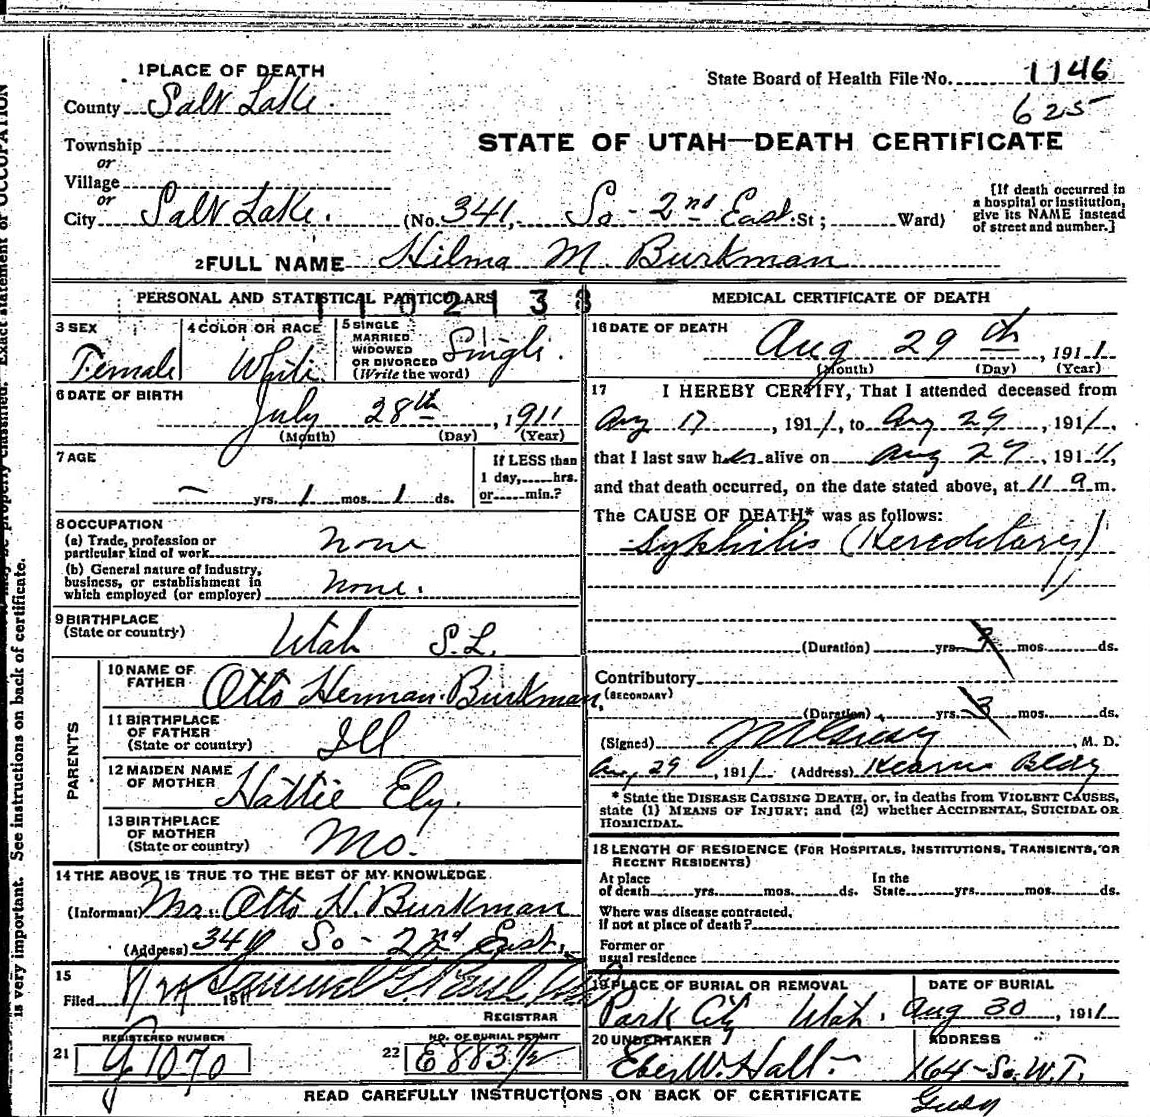 1 PLACE OF DEATH
County Salt Lake.
State Board of Health File No. 1146
625
Township
or
Village
or
STATE OF UTAH—DEATH CERTIFICATE
City Salt Lake. (No. 341, So - 2nd East. St ; Ward)
[If death occurred in a hospital or institution, give its NAME instead of street and number.]
2 FULL NAME Hilma M. Burkman
PERSONAL AND STATISTICAL PARTICULARS
1102138
3 SEX
Female
4 COLOR OR RACE
White.
5 SINGLE
MARRIED
WIDOWED
OR DIVORCED
(Write the word)
Single.
6 DATE OF BIRTH
July 28th, 1911
(Month) (Day) (Year)
7 AGE
— yrs. 1 mos. 1 ds.
If LESS than
1 day, hrs.
or min.?
8 OCCUPATION
(a) Trade, profession or
particular kind of work None
(b) General nature of industry,
business, or establishment in
which employed (or employer) None.
9 BIRTHPLACE
(State or country) Utah S.L.
PARENTS
10 NAME OF
FATHER Otto Herman Burkman,
11 BIRTHPLACE
OF FATHER
(State or country) Ill
12 MAIDEN NAME
OF MOTHER Hattie Ely.
13 BIRTHPLACE
OF MOTHER
(State or country) Mo.
14 THE ABOVE IS TRUE TO THE BEST OF MY KNOWLEDGE
(Informant) Mr. Otto H. Burkman
(Address) 341 So - 2nd East,
15
Filed 191
REGISTRAR
REGISTERED NUMBER
21 1070
NO. OF BURIAL PERMIT
22 E 883
MEDICAL CERTIFICATE OF DEATH
16 DATE OF DEATH
Aug 29th, 1911
(Month) (Day) (Year)
17 I HEREBY CERTIFY, That I attended deceased from
Aug 17, 1911, to Aug 29, 1911,
that I last saw her alive on Aug 29, 1911,
and that death occurred, on the date stated above, at 11 a m.
The CAUSE OF DEATH* was as follows:
Syphilis (Hereditary)
(Duration) yrs. mos. ds.
Contributory
(SECONDARY)
(Duration) yrs. 3 mos. ds.
(Signed) , M. D.
Aug 29, 1911 (Address) Kearns Bldg
* State the DISEASE CAUSING DEATH, or, in deaths from VIOLENT CAUSES,
state (1) MEANS OF INJURY; and (2) whether ACCIDENTAL, SUICIDAL OR
HOMICIDAL.
18 LENGTH OF RESIDENCE (FOR HOSPITALS, INSTITUTIONS, TRANSIENTS, OR
RECENT RESIDENTS)
At place
of death yrs. mos. ds.
In the
State yrs. mos. ds.
Where was disease contracted,
if not at place of death?
Former or
usual residence
19 PLACE OF BURIAL OR REMOVAL
Park City Utah.
DATE OF BURIAL
Aug 30, 1911
20 UNDERTAKER
Eber W. Hall.
ADDRESS
164 - So. W.T.
READ CAREFULLY INSTRUCTIONS ON BACK OF CERTIFICATE
be properly classified. Exact statement of OCCUPATION
is very important. See instructions on back of certificate.